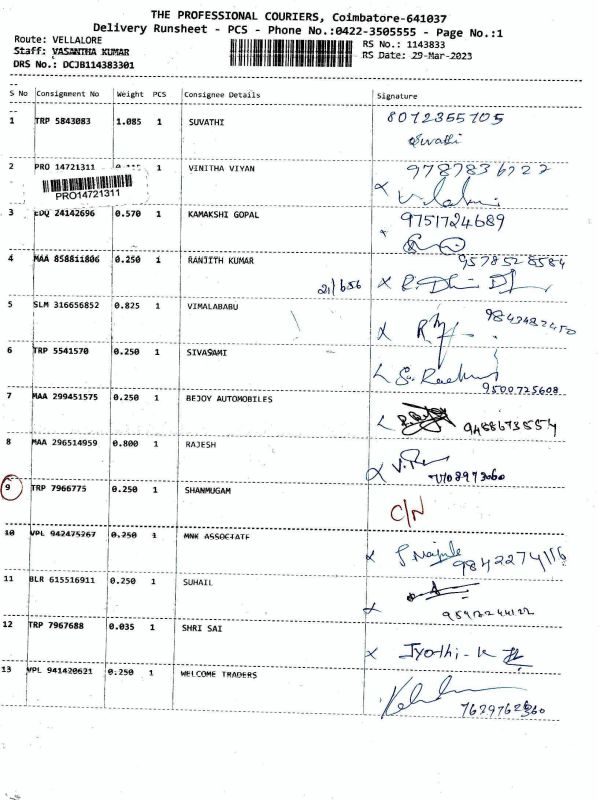 THE PROFESSIONAL COURIERS, Coimbatore-641037
Delivery Runsheet - PCS - Phone No.:0422-3505555 - Page No.:1
Route: VELLALORE
Staff: VASANTHA KUMAR
DRS No.: DCJB114383301
RS No.: 1143833
RS Date: 29-Mar-2023
S No Consignment No Weight PCS Consignee Details Signature
1 TRP 5843083 1.085 1 SUVATHI 8072355705
Suvathi
2 PRO 14721311 1 VINITHA VIYAN
PRO14721311
3 EDQ 24142696 0.570 1 KAMAKSHI GOPAL 9751724689
4 MAA 858811806 0.250 1 RANJITH KUMAR 9578528584
21/656
5 SLM 316656852 0.825 1 VIMALABABU
6 TRP 5541570 0.250 1 SIVASAMI
9500725608
7 MAA 299451575 0.250 1 BEJOY AUTOMOBILES
9488673554
8 MAA 296514959 0.800 1 RAJESH
9 TRP 7966775 0.250 1 SHANMUGAM C/N
10 VPL 942475267 0.250 1 MNK ASSOCIATE
9842274116
11 BLR 615516911 0.250 1 SUHAIL
12 TRP 7967688 0.035 1 SHRI SAI
Jyothi-K
13 VPL 941420621 0.250 1 WELCOME TRADERS